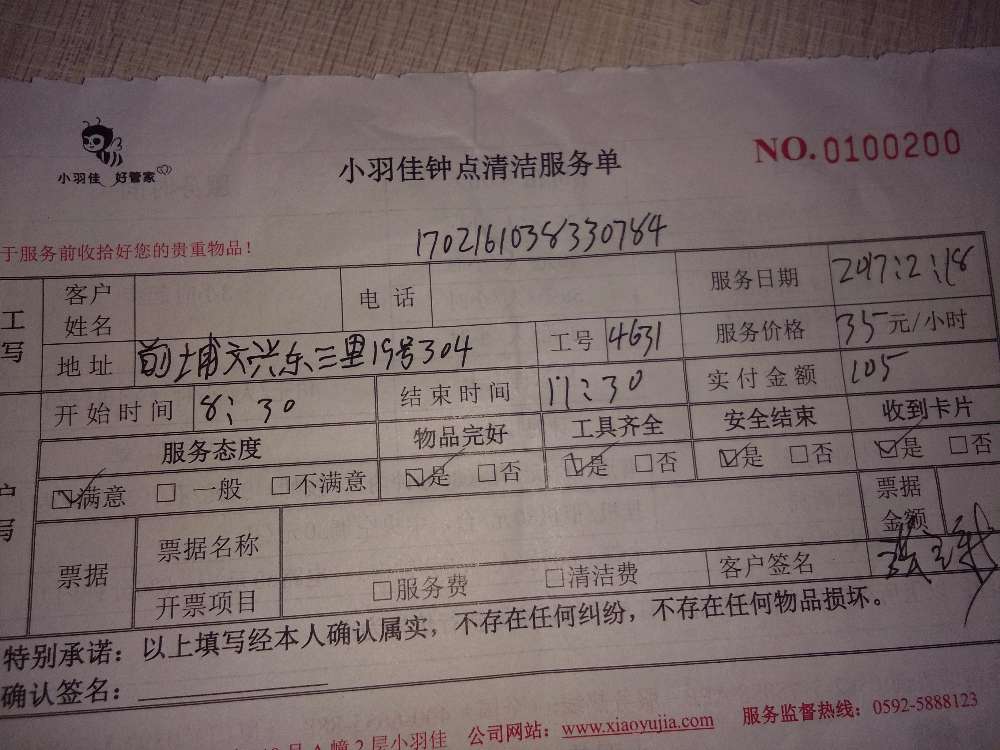 小羽佳 好管家
小羽佳钟点清洁服务单
NO. 0100200
于服务前收拾好您的贵重物品！
1702161038330784
工
写
客户姓名
电话
服务日期 2017:2:18
地址 前埔文兴东三里19号304
工号 4631
服务价格 35元/小时
开始时间 8:30
结束时间 11:30
实付金额 105
服务态度 物品完好 工具齐全 安全结束 收到卡片
☑满意 □一般 □不满意 ☑是 □否 ☑是 □否 ☑是 □否 ☑是 □否
户
写
票据
票据名称
票据金额
开票项目 □服务费 □清洁费
客户签名
特别承诺：以上填写经本人确认属实，不存在任何纠纷，不存在任何物品损坏。
确认签名：
号A幢2层小羽佳 公司网站：www.xiaoyujia.com 服务监督热线：0592-5888123